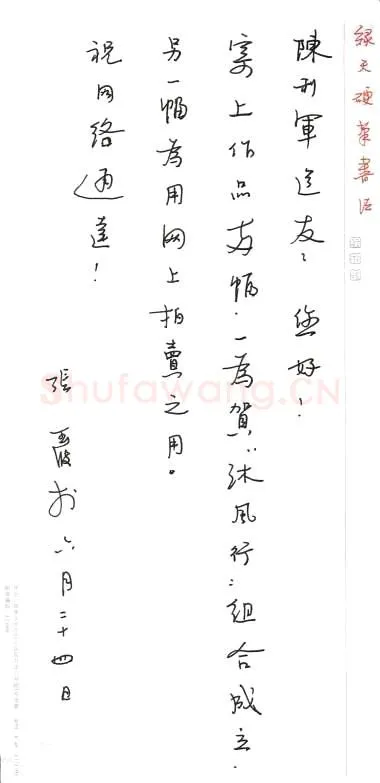 綠天硬筆書法
陳利軍道友：您好！
寄上作品两幅．一為賀“沐風行”組合成立．
另一幅為用网上拍賣之用。
祝网络通達！
張 於六月二十四日
Shufawang.CN